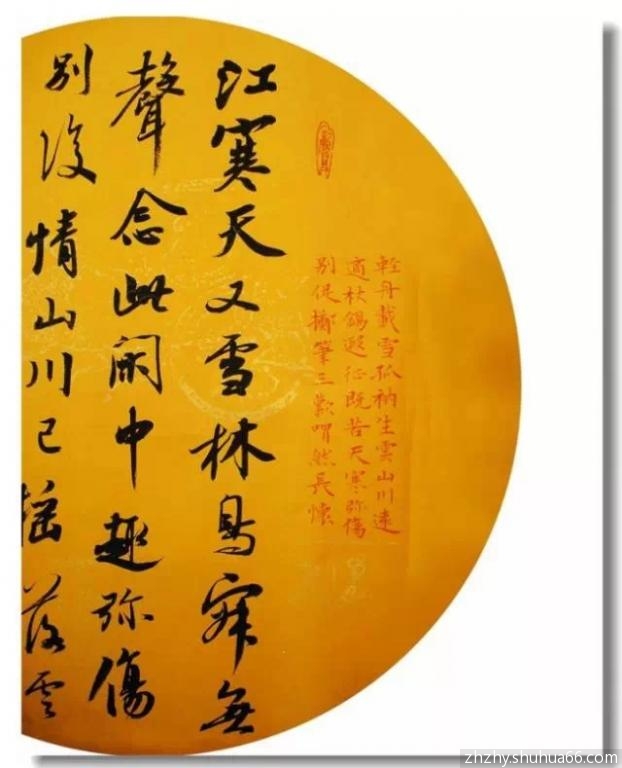 輕舟載雪孤衲生雲山川遠
適杖錫遐征既苦天寒弥傷
別促擲筆三歎喟然長懷
江寒天又雪林鳥寂無
聲念此閑中趣弥傷
別後情山川已搖落雲
zhzhy.shuhua66.com